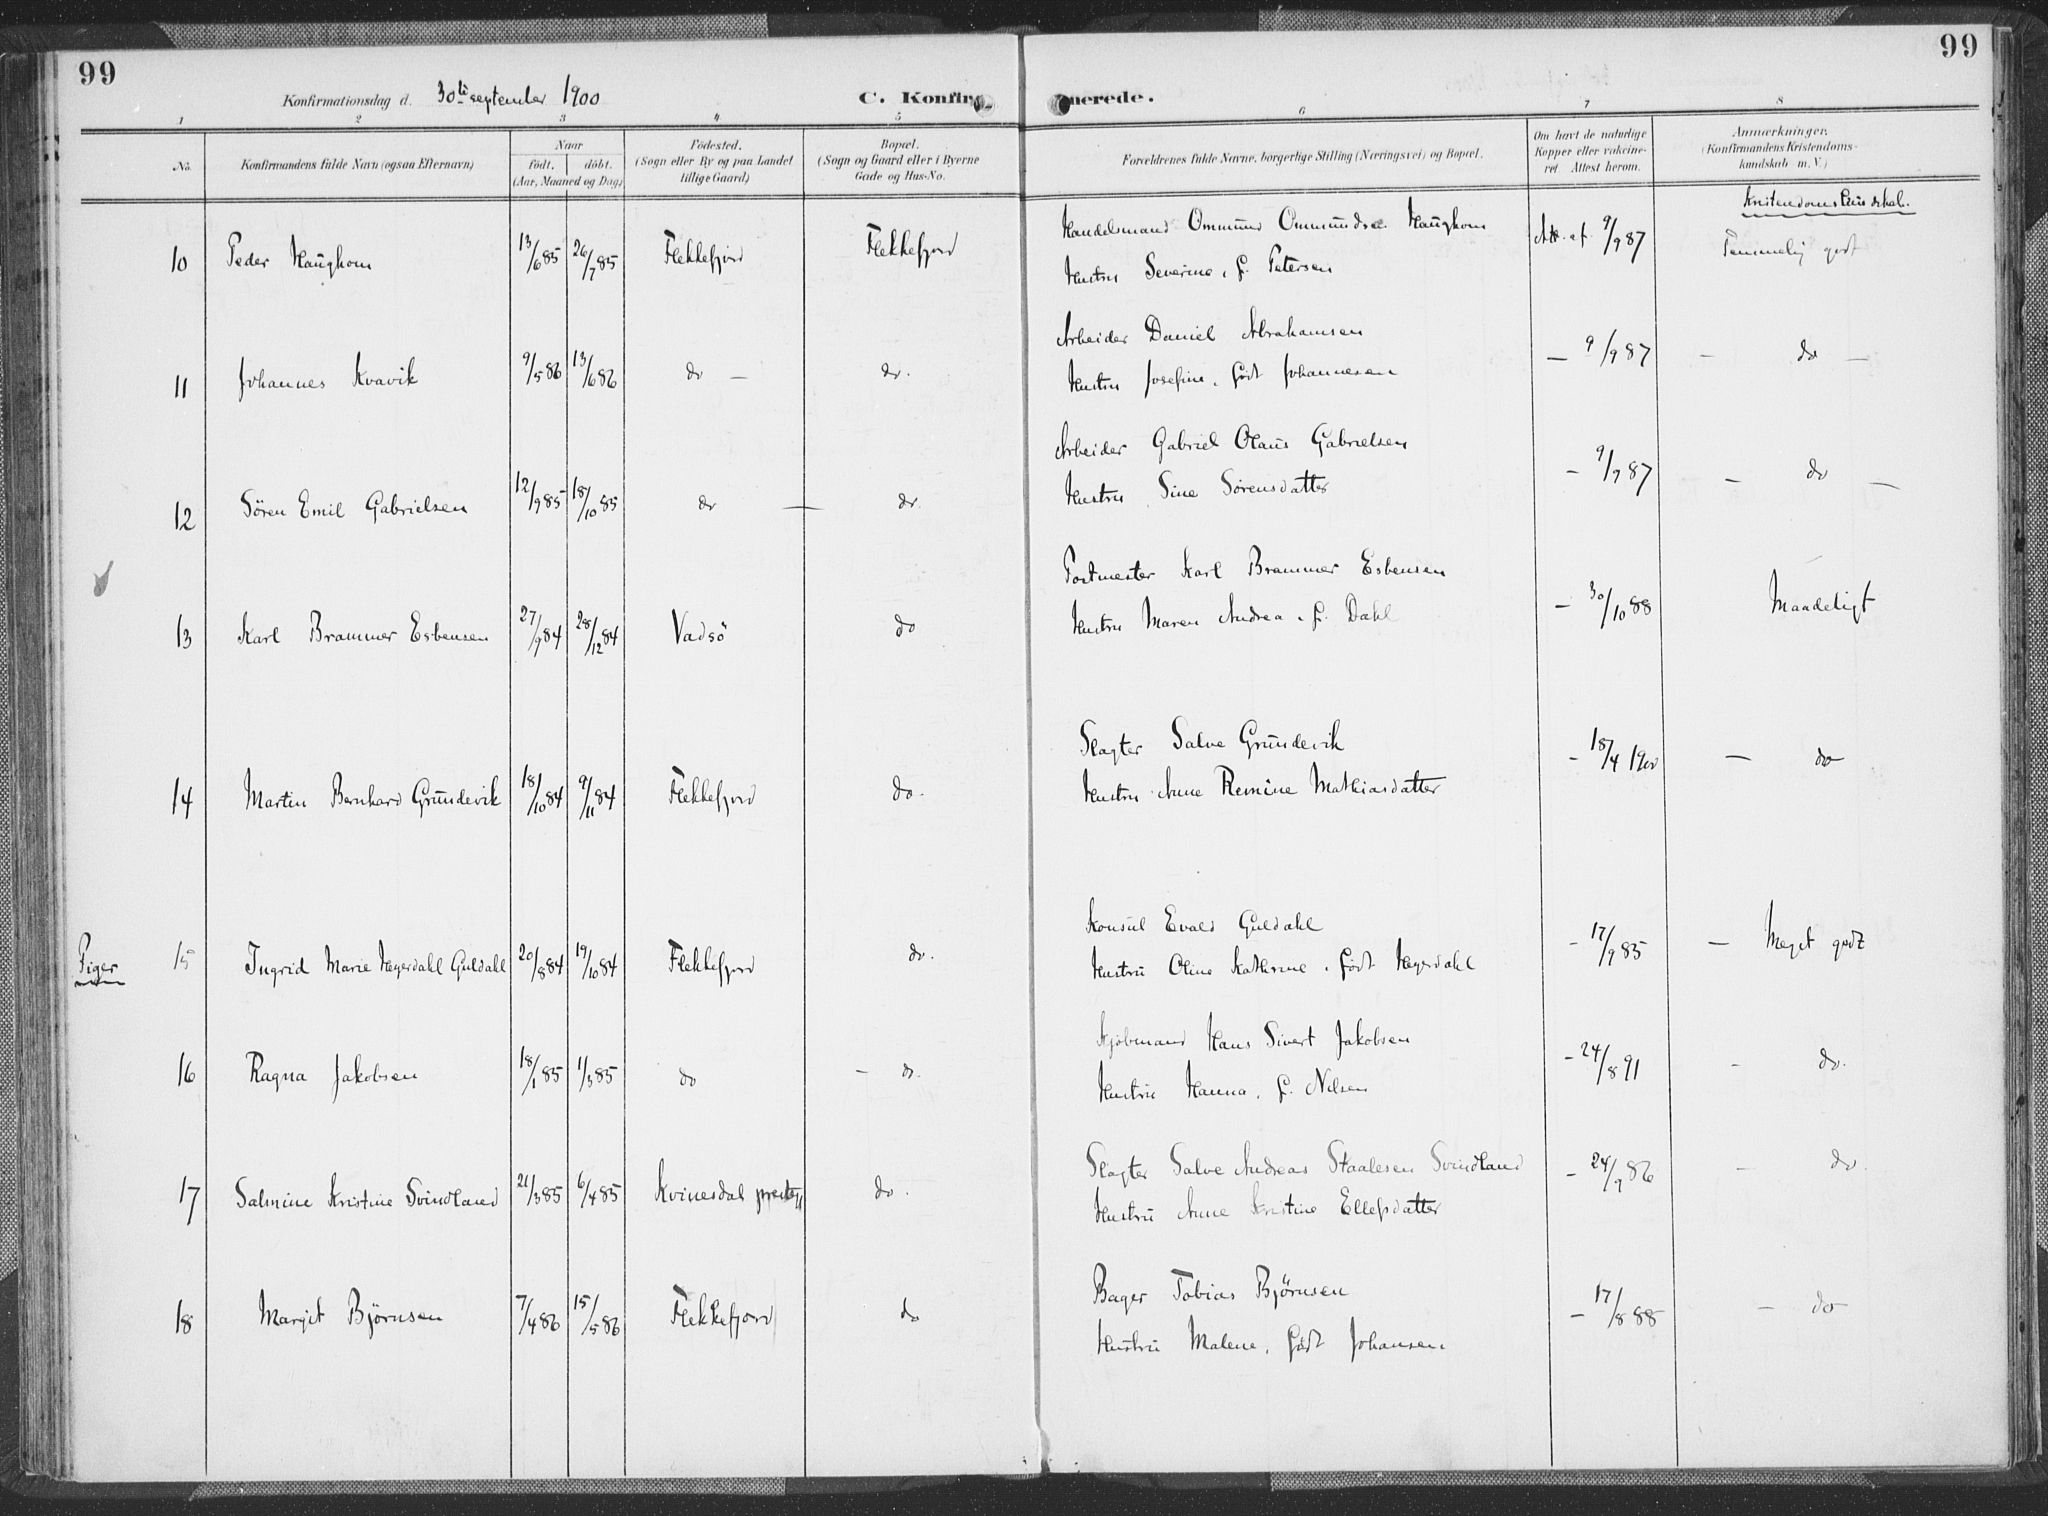 99
99
Konfirmationsdag d. 30te september 1900
C. Konfir merede.
1 2 3 4 5 6 7 8
No.
Konfirmandens fulde Navn (ogsaa Efternavn)
Naar
født. døbt.
(Aar, Maaned og Dag)
Fødested.
(Sogn eller By og paa Landet
tillige Gaard)
Bopæl.
(Sogn og Gaard eller i Byerne
Gade og Hus-No.
Forældrenes fulde Navne, borgerlige Stilling (Næringsvei) og Bopæl.
Om havt de naturlige
Kopper eller vakcine-
ret Attest herom.
Anmærkninger.
(Konfirmandens Kristendoms-
kundskab m. V.)
Kristendomskundskab.
10 Peder Haughom 13/6 85 26/7 85 Flekkefjord Flekkefjord
Handelsmand Ommund Haughom
Hustru Severine, f. Petersen
Att. af 9/9 87
Temmelig godt
11 Johannes Kvavik 9/5 86 13/6 86 do — do.
Arbeider Daniel Abrahamsen
Hustru Josefine, født Johannesen
— 9/9 87 — do —
12 Sören Emil Gabrielsen 12/9 85 18/10 85 do — do.
Arbeider Gabriel Olaus Gabrielsen
Hustru Sine Sörensdatter
— 9/9 87 — do —
13 Karl Brammer Esbensen 27/9 84 28/12 84 Vadsö do
Postmester Karl Brammer Esbensen
Hustru Maren Andrea, f. Dahl
— 30/10 88 Maadeligt
14 Martin Bernhard Grundevik 18/10 84 9/11 84 Flekkefjord do.
Slagter Salve Grundevik
Hustru Anne Remine Mathiasdatter
— 18/4 1900 — do
Piger
15 Ingrid Marie Heyerdahl Guldahl 20/8 84 19/10 84 Flekkefjord do.
Konsul Evald Guldahl
Hustru Oline Kathrine, født Heyerdahl
— 17/9 85 — Meget godt
16 Ragna Jakobsen 18/1 85 1/3 85 do — do.
Kjøbmand Hans Sivert Jakobsen
Hustru Hanna, f. Nilsen
— 24/8 91 — do.
17 Salmine Kristine Svindland 21/3 85 6/4 85 Kvinesdal do.
Slagter Salve Andreas Staalesen Svindland
Hustru Anne Kristine Ellefsdatter
— 24/9 86 — do.
18 Margit Björnsen 7/4 86 15/5 86 Flekkefjord do
Bager Tobias Björnsen
Hustru Malene, født Johansen
— 17/8 88 — do